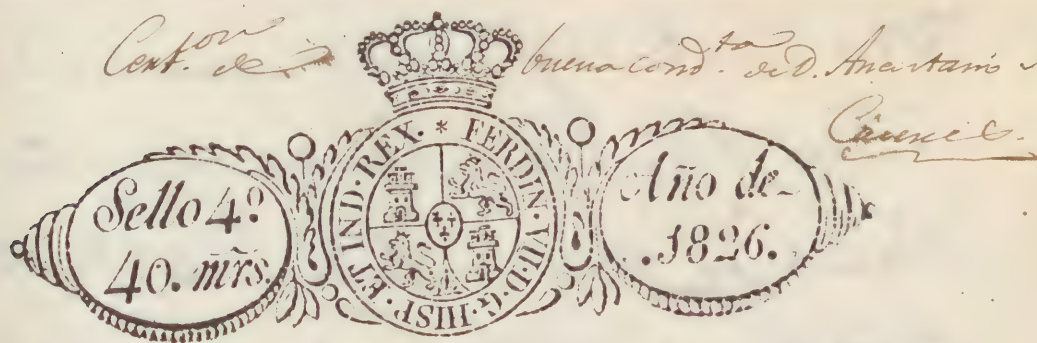 Cert.on de buena cond.ta de D. Anastasio
Sello 4º
40. mrs.
FERDIN. VII. D. G. HISP. ET IND. REX. *
Año de
.1826.